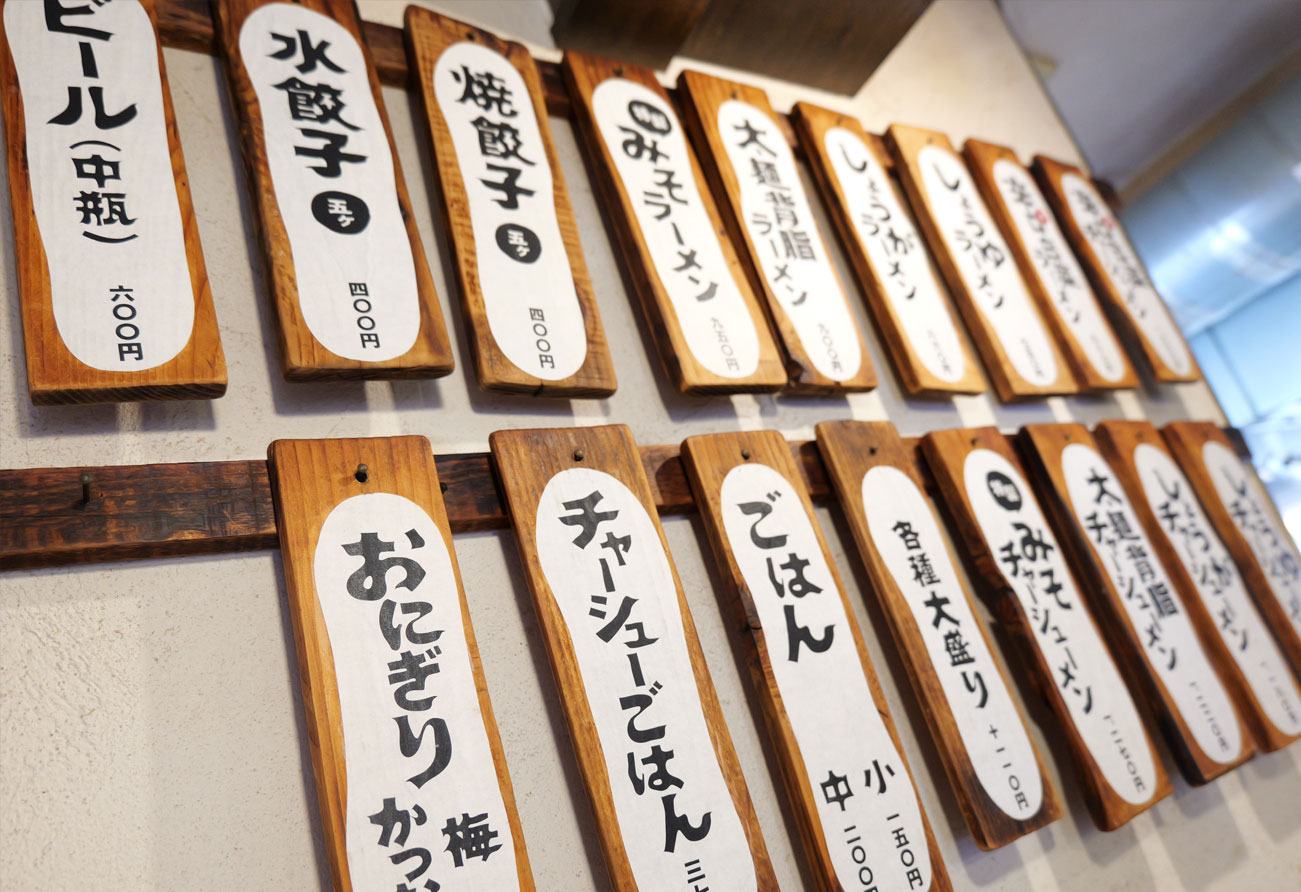 ビール(中瓶)
六〇〇円
水餃子
五ヶ
四〇〇円
焼餃子
五ヶ
四〇〇円
みそ
ラーメン
九五〇円
太麺背脂
ラーメン
九〇〇円
しょうが
ラーメン
しょうゆ
ラーメン
おにぎり
梅
かつお
チャーシューごはん
ごはん
小 一五〇円
中 二〇〇円
各種大盛り
十一一〇円
みそ
チャーシューメン
太麺背脂
チャーシューメン
しょうが
チャーシューメン
しょうゆ